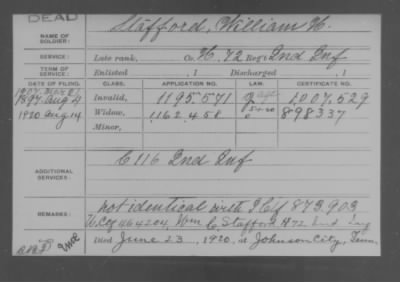 DEAD
NAME OF SOLDIER: Stafford, William H.
SERVICE: Late rank, Co. H, 72 Reg't 2nd Inf
TERM OF SERVICE: Enlisted , 1 Discharged , 1
DATE OF FILING. CLASS. APPLICATION NO. LAW. CERTIFICATE NO.
1897 Aug 4 Invalid, 1195.571 1,007,529
1920 Aug 14 Widow, 1162458 898337
Minor,
ADDITIONAL SERVICES: C 116 2nd Inf
REMARKS: not identical with 873.903
464204, Wm C. Stafford H 72 Ind Inf
Died June 23, 1920, at Johnson City, Tenn.